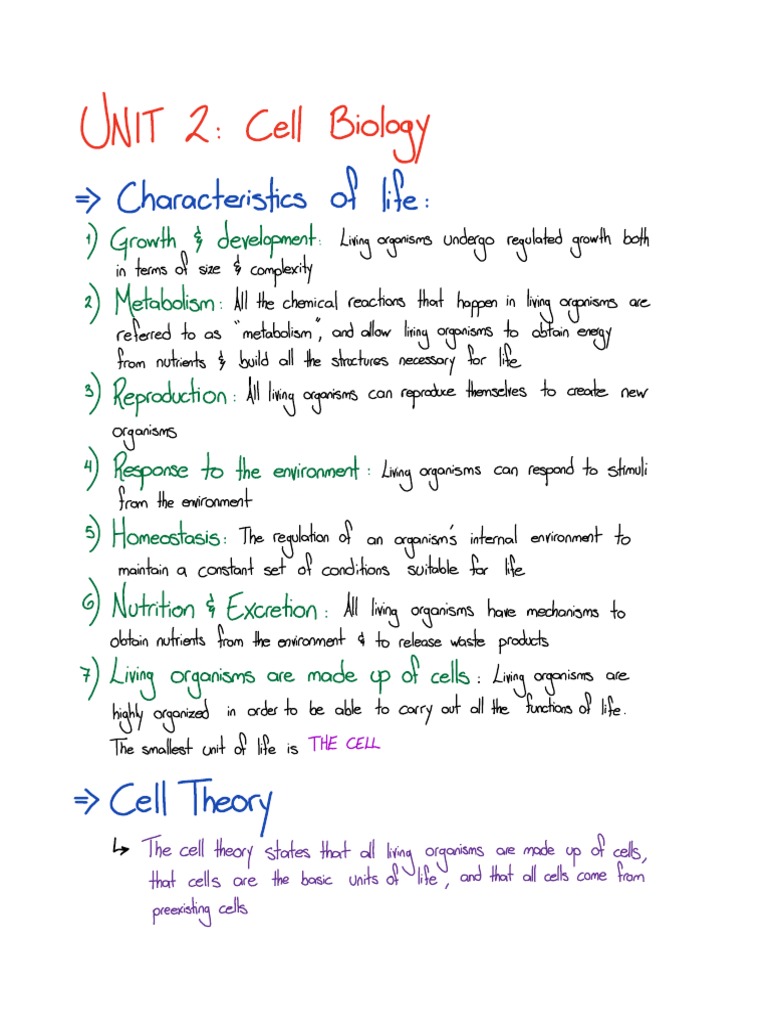 UNIT 2: Cell Biology
⇒ Characteristics of life:
1) Growth & development: Living organisms undergo regulated growth both
in terms of size & complexity
2) Metabolism: All the chemical reactions that happen in living organisms are
referred to as "metabolism", and allow living organisms to obtain energy
from nutrients & build all the structures necessary for life
3) Reproduction: All living organisms can reproduce themselves to create new
organisms
4) Response to the environment: Living organisms can respond to stimuli
from the environment
5) Homeostasis: The regulation of an organism's internal environment to
maintain a constant set of conditions suitable for life
6) Nutrition & Excretion: All living organisms have mechanisms to
obtain nutrients from the environment & to release waste products
7) Living organisms are made up of cells: Living organisms are
highly organized in order to be able to carry out all the functions of life.
The smallest unit of life is THE CELL
⇒ Cell Theory
↳ The cell theory states that all living organisms are made up of cells,
that cells are the basic units of life, and that all cells come from
preexisting cells